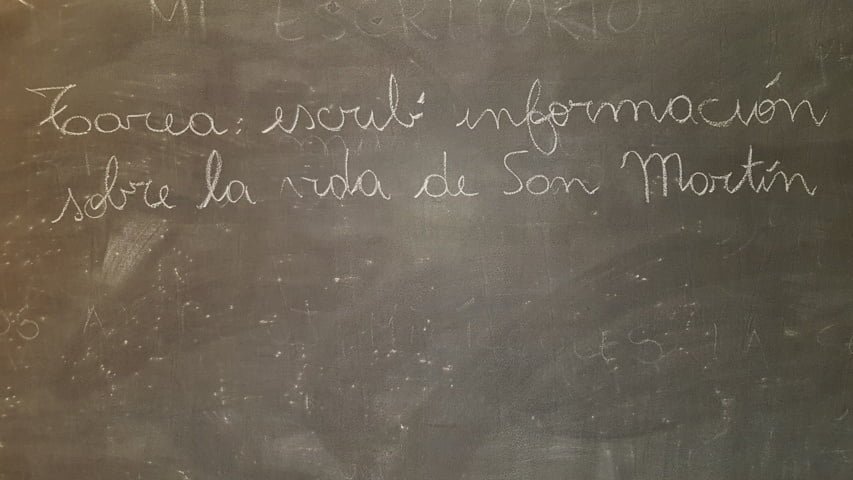 MI ESCRITORIO
Tarea: escribí información
sobre la vida de San Martín